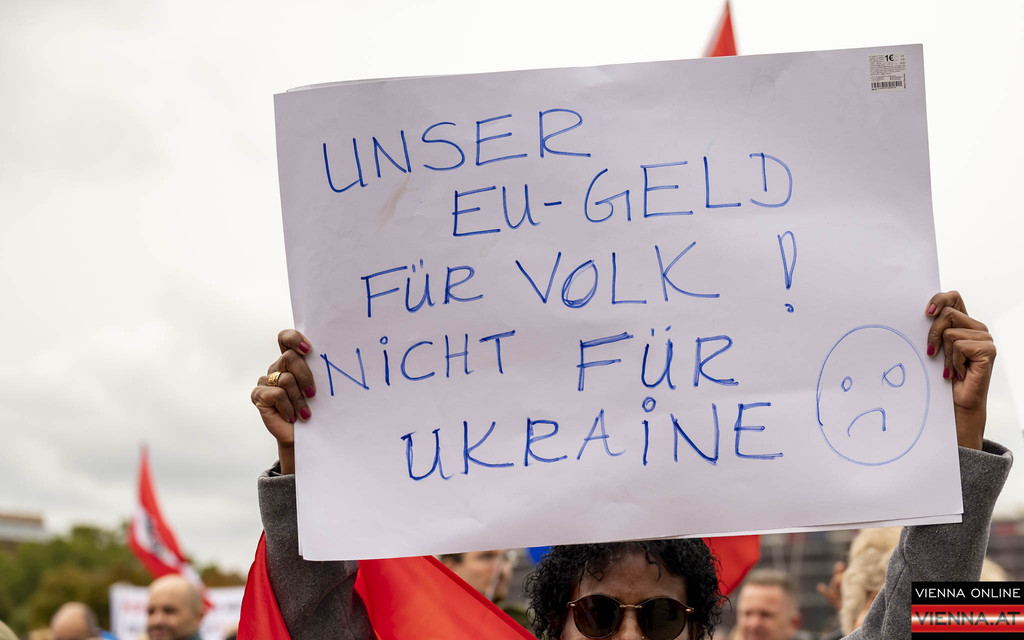 1€
UNSER
EU-GELD
FÜR VOLK !
NICHT FÜR
UKRAiNE
VIENNA ONLINE
VIENNA.AT